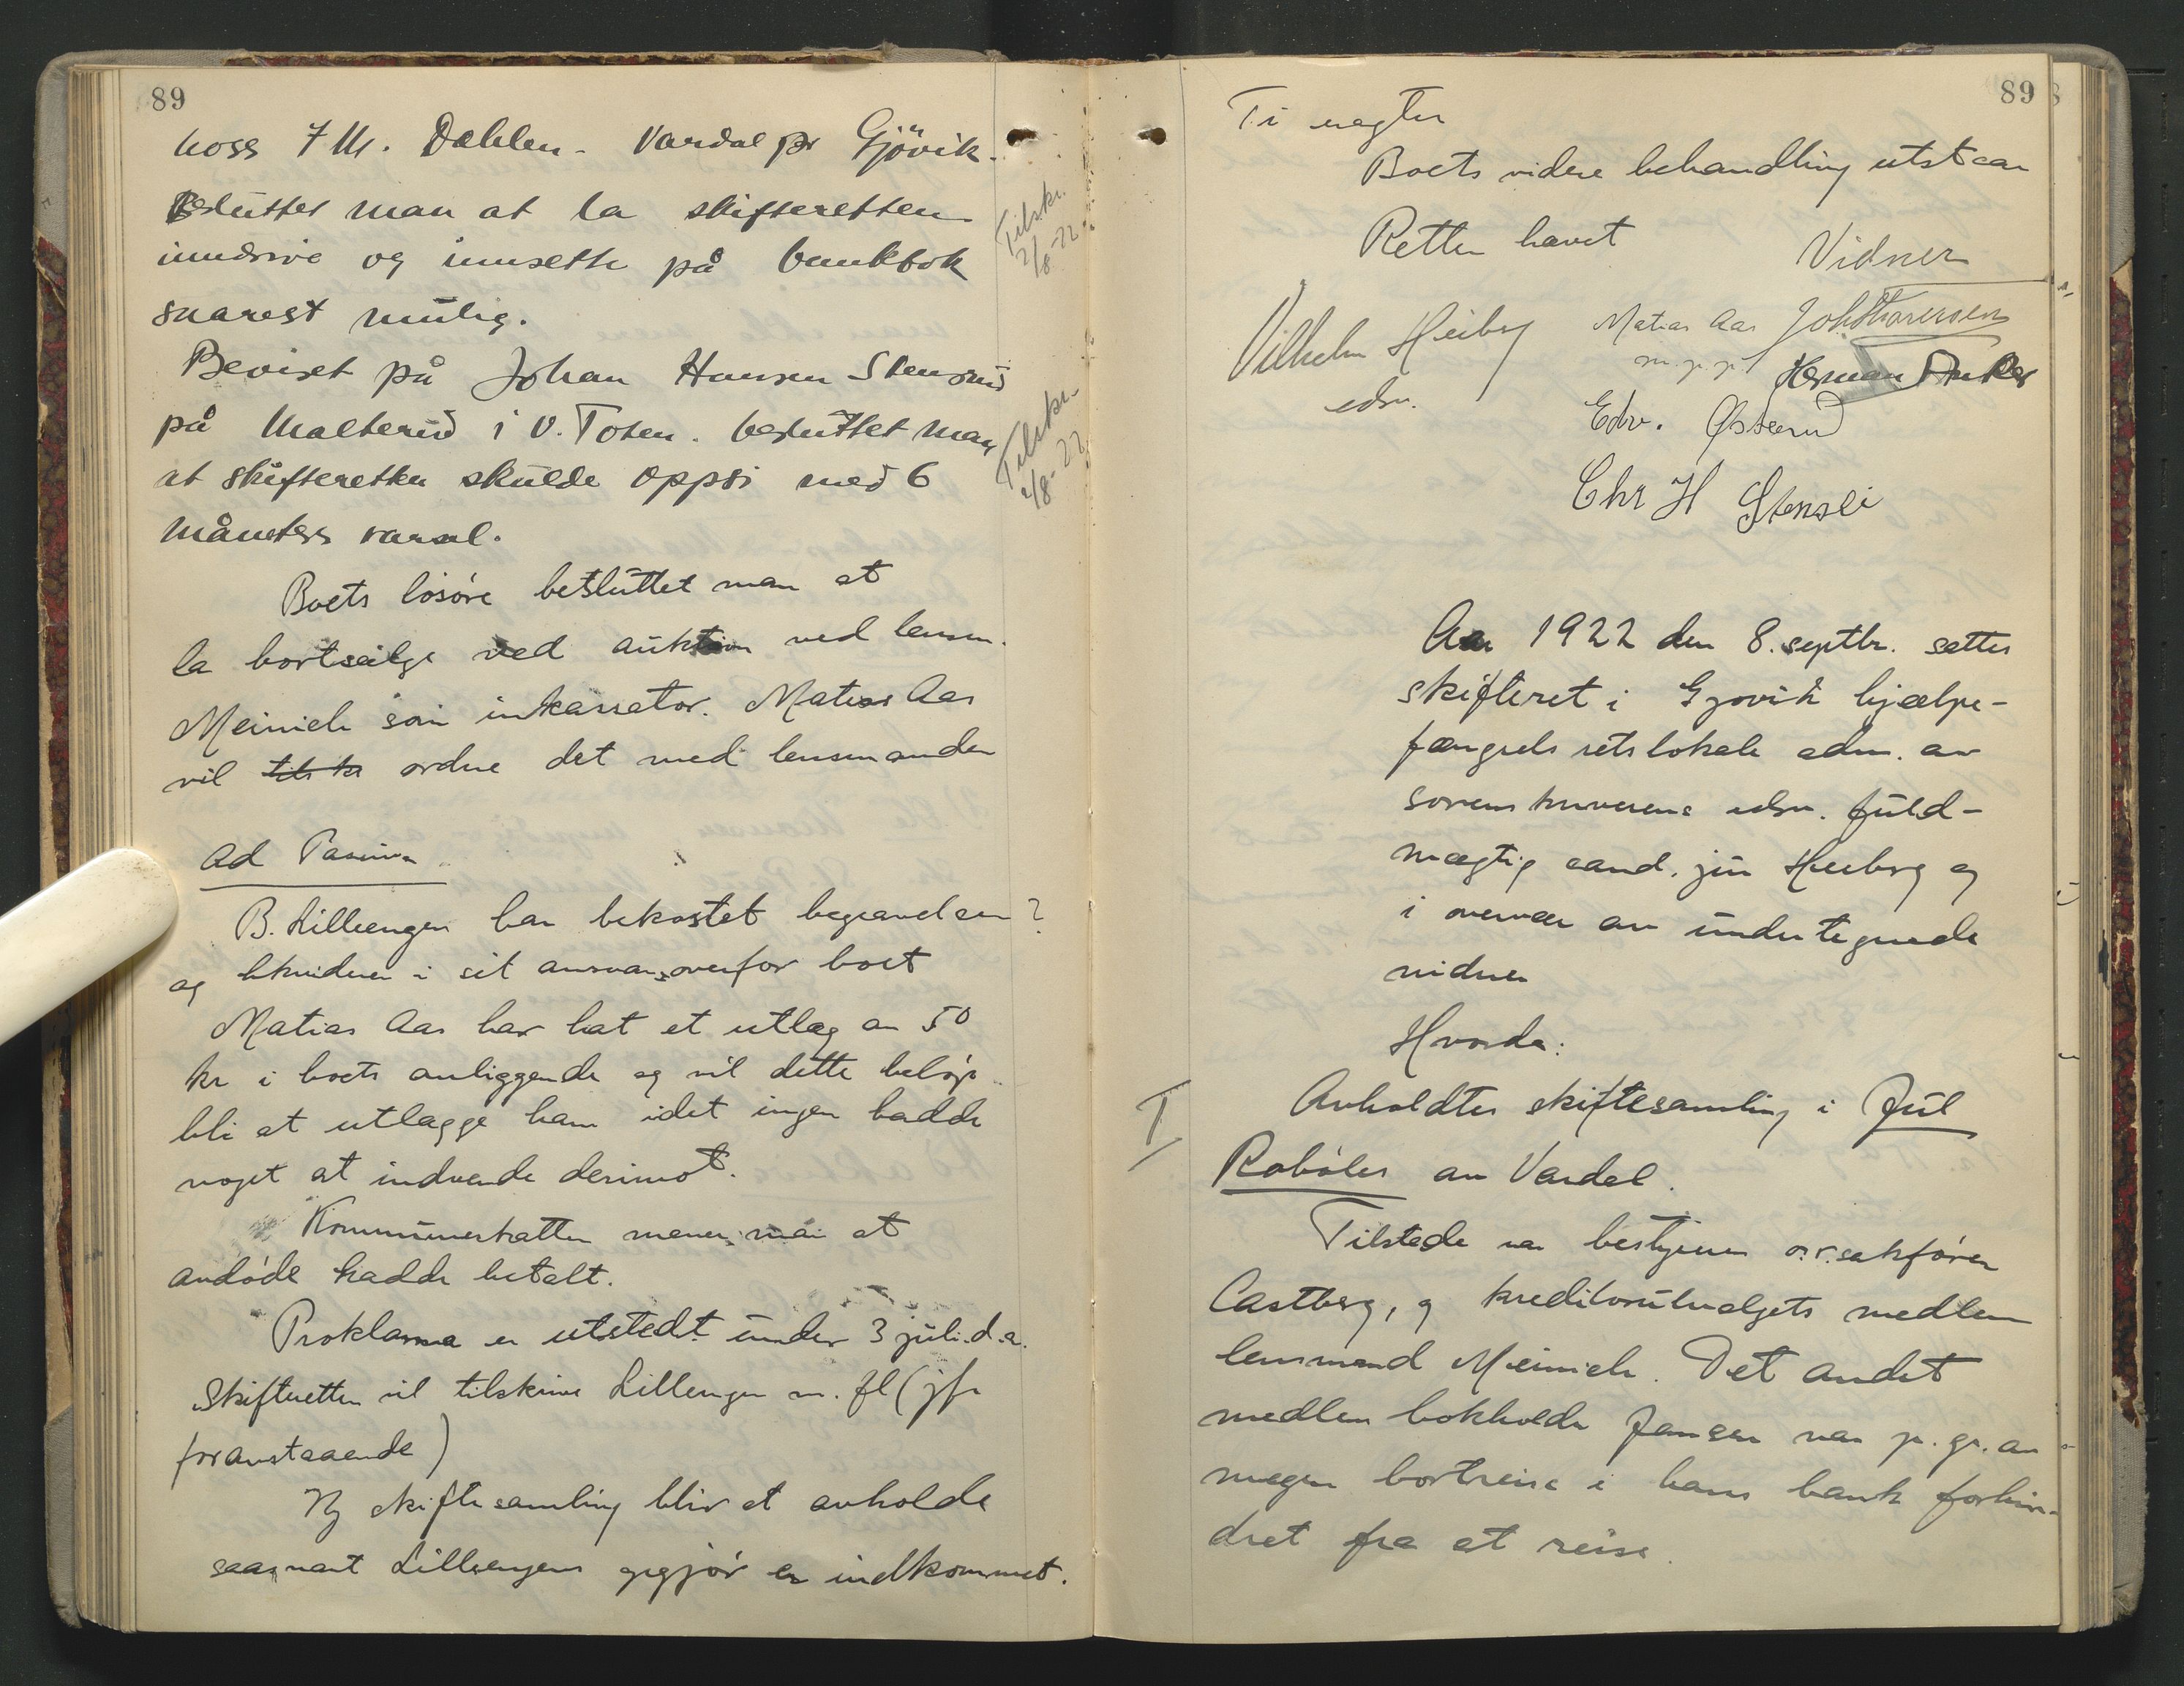 89
hoss F M. Dahlen - Vardal pr Gjövik.
Besluttet man at la skifteretten
inndrive og innsette på bankbok
snarest mulig.
Tilskr.
2/8-22
Beviset på Johan Hansen Stensrud
på Malterud i V. Toten. besluttet man
at skifteretten skulde oppsi med 6
måneders varsel.
Tilskr.
2/8-22
Boets løsøre besluttet man at
la bortsælge ved auktion ved lensm.
Meinich som inkassator. Matias Aas
vil ordne det med lensmanden
ad Passiva
B. Lilleengen har bekostet begravelsen ?
og likviderer i sit ansvar overfor boet
Matias Aas har hat et utlæg av 50
kr i boets anliggende og vil dette beløp
bli at utlægge ham idet ingen hadde
noget at indvende derimot.
Kommuneskatten mener man at
avdøde hadde betalt.
Proklama er utstedt under 3 juli d.a.
Skifteretten vil tilskrive Lillengen m. fl (jfr
foranstaaende)
Ny skiftesamling blir at avholde
saasnart Lilleengens opgjør er indkommet.
89
Ti vegter
Boets videre behandling utstaar
Retten hævet
Vidner
Vilhelm Heiberg
edsv.
Matias Aas
m.p.p.
Joh Thoresen
Herman Anker
Edv. Østerud
Chr H Stensli
Aar 1922 den 8. septbr. sattes
skifteret i Gjøvik hjælpe-
fængsels retslokale adm. av
sorenskriverens edsv. fuld-
mægtig cand. jur Heiberg og
i overvær av undertegnede
vidner
Hvorda:
I
Avholdtes skiftesamling i Jul
Robøles av Vardal.
Tilstede var bestyreren o.r.sakfører
Castberg, og kreditorutvalgets medlem
lensmand Meinich. Det andet
medlem bokholder Jansen var p. gr. av
megen bortreise i hans bank forhin-
dret fra at reise.